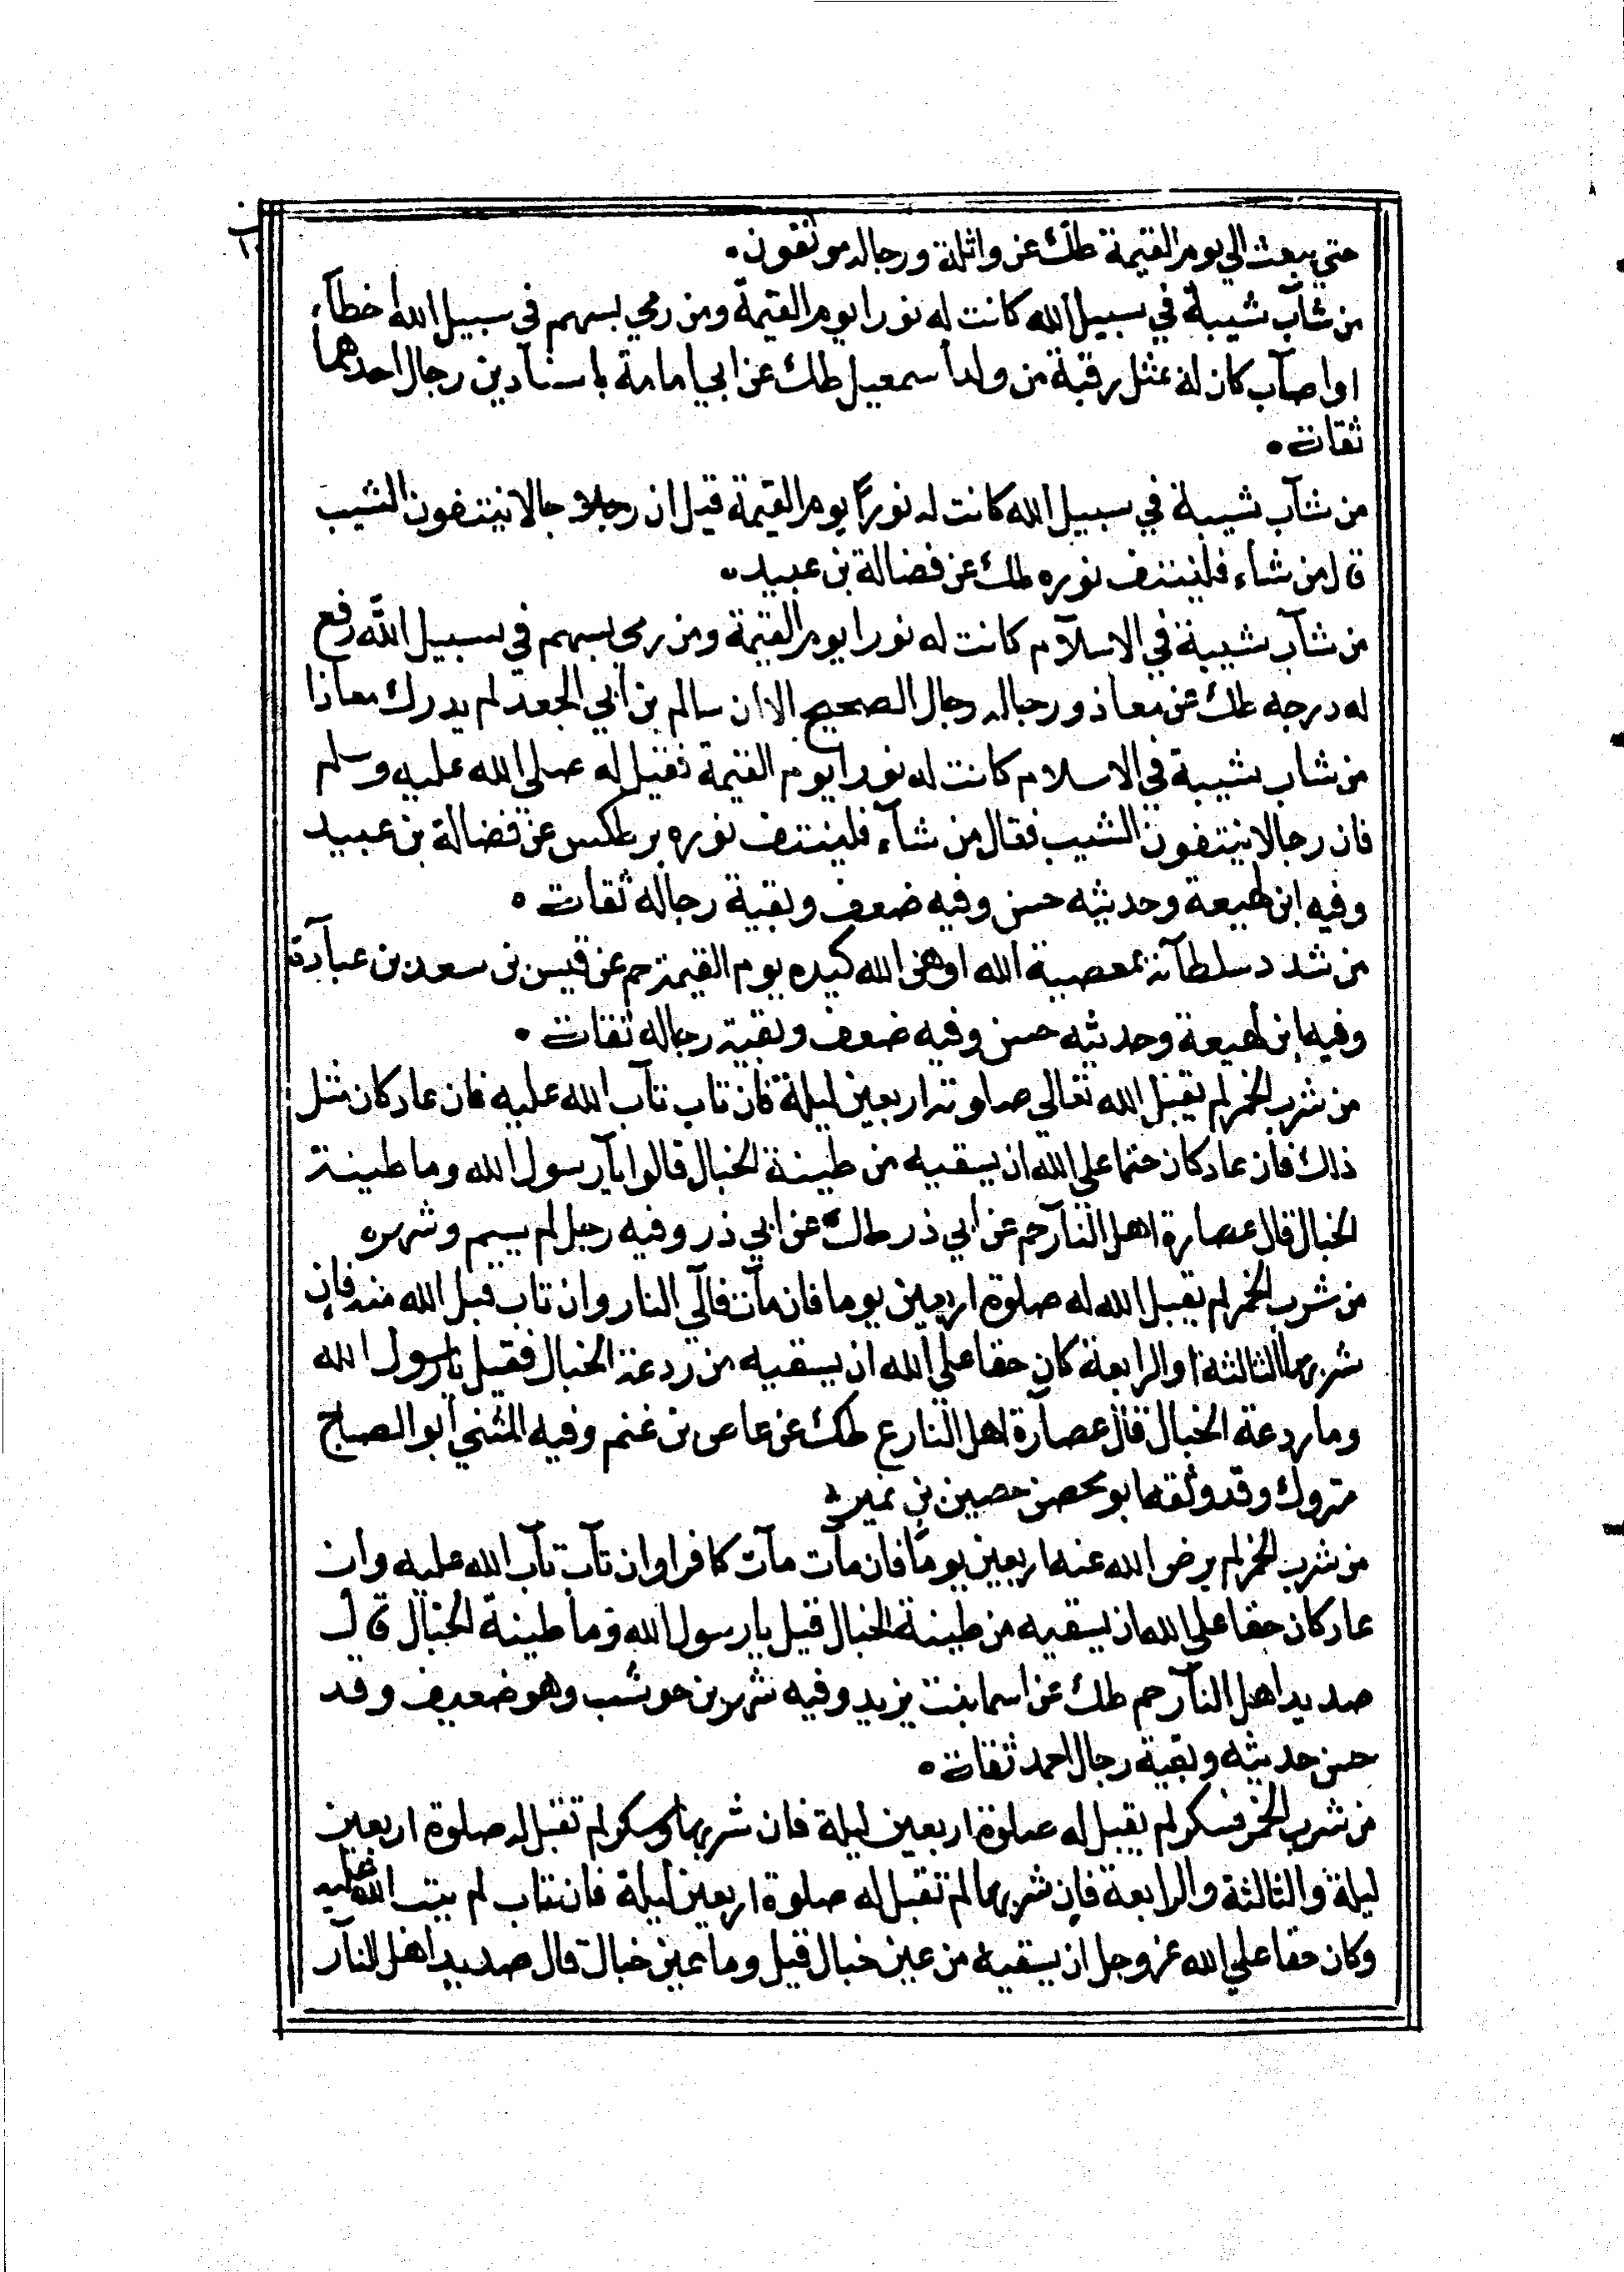 حتي يبعث الي يوم القيمة طك عن واثلة ورجاله موثقون ٠
من شآب شيبة في سبيل الله كانت له نورا يوم القيمة ومن رمي بسهم في سبيل الله اخطآء
او اصآب كان له مثل رقبة من ولد اسمعيل طك عن ابي امامة باسنادين رجال احدهما
ثقات ٠
من شآب شيبة في سبيل الله كانت له نورًا يوم القيمة قيل ان رجالا ينتفون الشيب
قال من شاء فلينتف نوره طك عن فضالة بن عبيد ٠
من شآب شيبة في الاسلآم كانت له نورا يوم القيمة ومن رمى بسهم في سبيل الله رفع
له درجه طك عن معاذ ورجاله رجال الصحيح الا ان سالم بن ابي الجعد لم يدرك معاذا
من شاب شيبة في الاسلام كانت له نورا يوم القيمة فقيل له صلي الله عليه وسلم
فان رجالا ينتفون الشيب فقال من شآء فلينتف نوره بر طكس عن فضالة بن عبيد
وفيه ابن لهيعة وحديثه حسن وفيه ضعف وبقية رجاله ثقات ٠
من شدد سلطآنه بمعصية الله اوهن الله كيده يوم القيمة حم عن قيس بن سعد بن عبآدة
وفيه ابن لهيعة وحديثه حسن وفيه ضعف وبقية رجاله ثقات ٠
من شرب الخمر لم يقبل الله تعالي صلوته اربعين ليلة فان تاب تآب الله عليه فان عاد كان مثل
ذلك فان عاد كان حتما علي الله ان يسقيه من طينة الخبال قالوا يآ رسول الله وما طينة
الخبال قال عصارة اهل النآر حم عن ابي ذر طك عن ابي ذر وفيه رجل لم يسم وشهر ه
من شرب الخمر لم يقبل الله له صلوة اربعين يوما فان مآت فآلي النار وان تاب قبل الله منه فان
شربها الثالثة او الرابعة كان حقا علي الله ان يسقيه من ردغة الخبال فقيل يا رسول الله
وما ردغة الخبال قال عصآرة اهل النار ع طك عن عاص بن غنم وفيه المثني ابو الصباح
متروك وقد وثقه ابو محصن حصين بن نمير
من شرب الخمر لم يرض الله عنه اربعين يومًا فان مآت مآت كافرا وان تآب تآب الله عليه وان
عاد كان حقا علي الله ان يسقيه من طينة الخبال قيل يا رسول الله وما طينة الخبال قال
صديد اهل النآر حم طك عن اسما بنت يزيد وفيه شهر بن حوشب وهو ضعيف وقد
حسن حديثه وبقية رجال احمد ثقات ٠
من شرب الخمر فسكر لم يقبل له صلوة اربعين ليلة فان شربها وسكر لم تقبل له صلوة اربعين
ليلة والثالثة والرابعة فان شربها لم تقبل له صلوة اربعين ليلة فان تاب لم يتب الله عليه
وكان حقا علي الله عز وجل ان يسقيه من عين خبال قيل وما عين خبال قال صديد اهل النآر